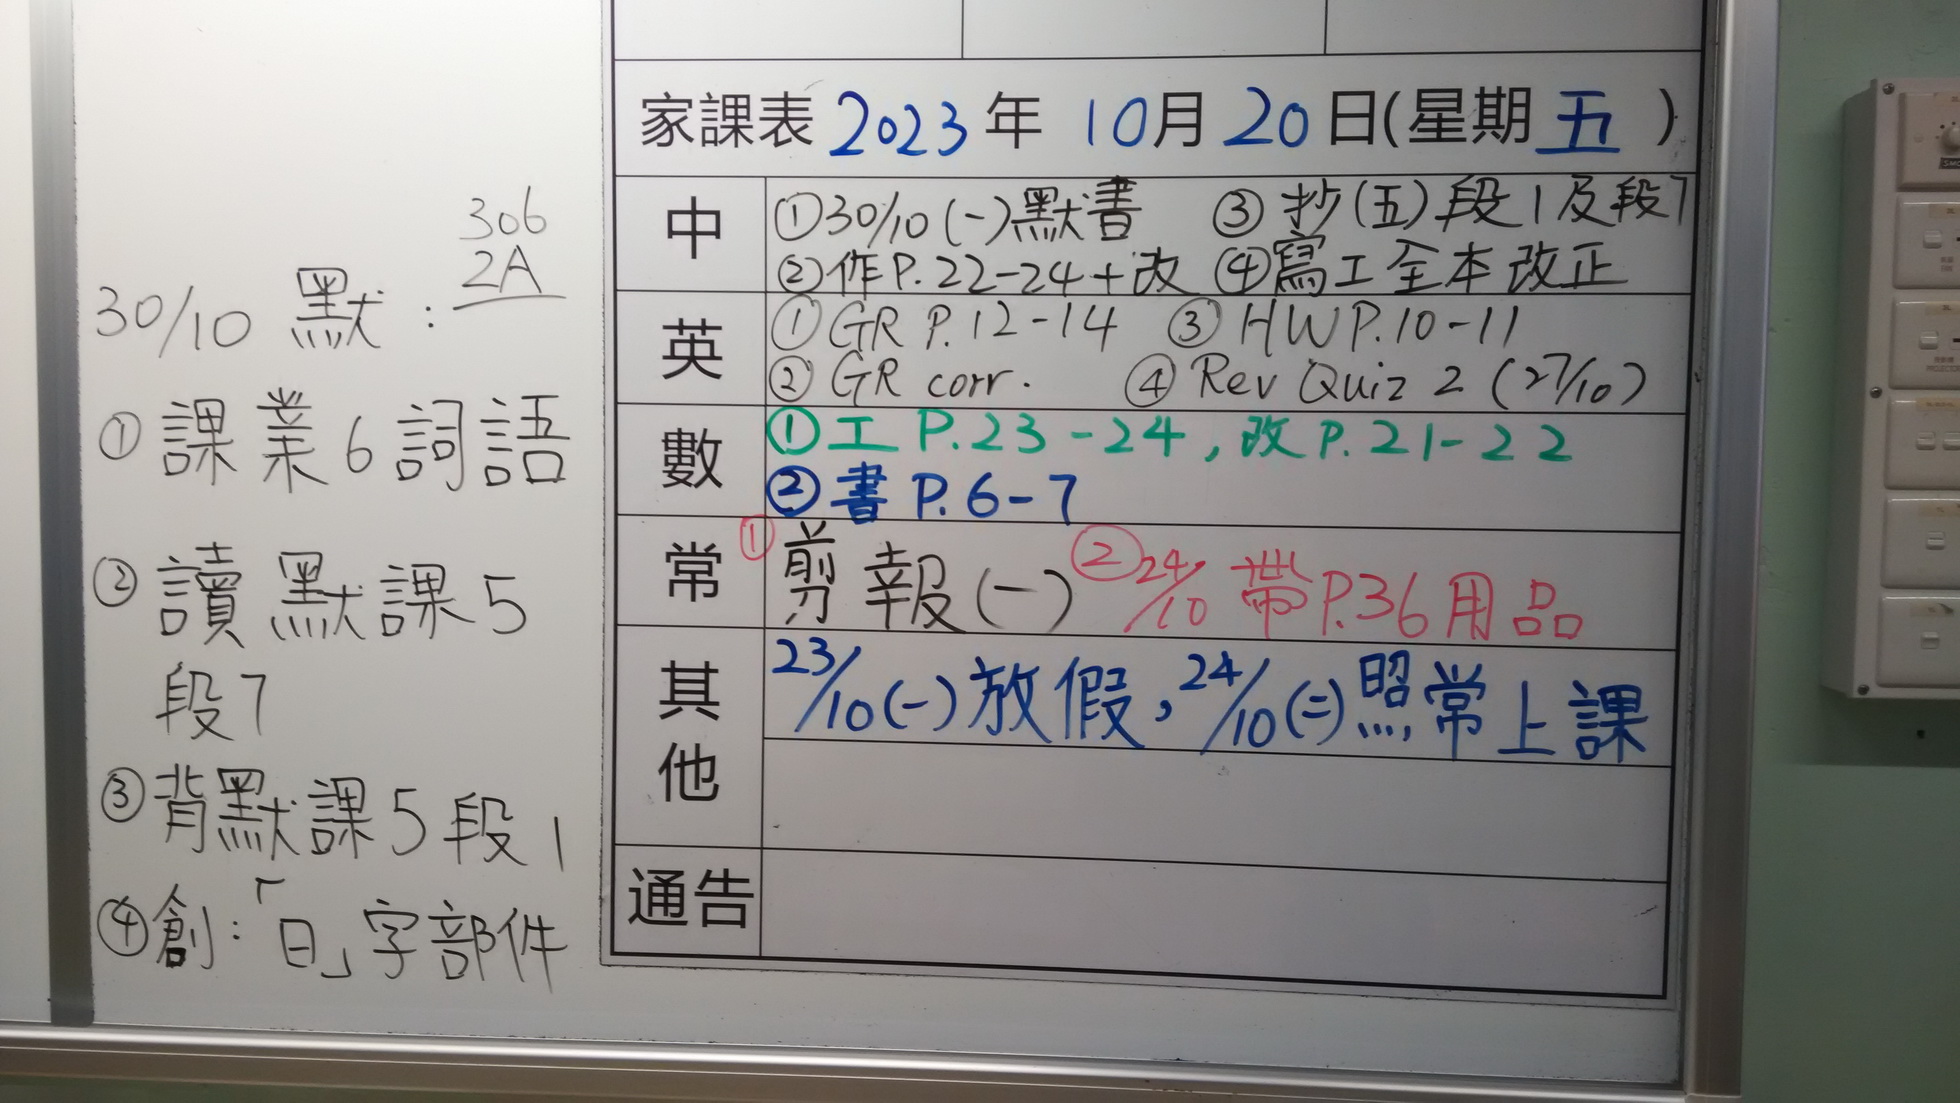 306
2A
30/10 默:
①課業6詞語
②讀默課5
段7
③背默課5段1
④創:「日」字部件
家課表 2023年 10月20日(星期五)
中 ①30/10(一)默書 ③抄(五)段1及段7
②作P.22-24+改 ④寫工全本改正
英 ①GR P.12-14 ③HW P.10-11
②GR corr. ④Rev Quiz 2 (27/10)
數 ①工P.23-24,改P.21-22
②書P.6-7
常 ①剪報(一) ②24/10帶P.36用品
其他 23/10(一)放假,24/10(二)照常上課
通告